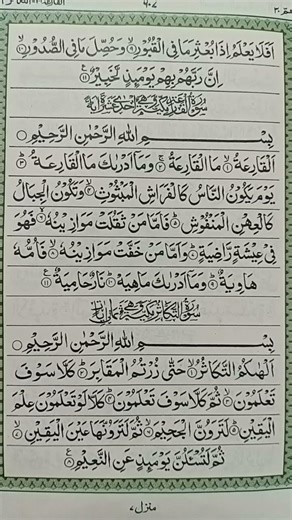 القارعة ١٠١
٦٠٧
عم ٣٠
اَفَلَا يَعْلَمُ اِذَا بُعْثِرَ مَا فِى الْقُبُوْرِ ۙ٩ وَحُصِّلَ مَا فِى الصُّدُوْرِ ۙ١٠
اِنَّ رَبَّهُمْ بِهِمْ يَوْمَئِذٍ لَّخَبِيْرٌ ١١
بِسْمِ اللّٰهِ الرَّحْمٰنِ الرَّحِيْمِ
اَلْقَارِعَةُ ۙ١ مَا الْقَارِعَةُ ۚ٢ وَمَاۤ اَدْرٰىكَ مَا الْقَارِعَةُ ۗ٣
يَوْمَ يَكُوْنُ النَّاسُ كَالْفَرَاشِ الْمَبْثُوْثِ ۙ٤ وَتَكُوْنُ الْجِبَالُ
كَالْعِهْنِ الْمَنْفُوْشِ ۗ٥ فَاَمَّا مَنْ ثَقُلَتْ مَوَازِيْنُهٗ ۙ٦ فَهُوَ
فِيْ عِيْشَةٍ رَّاضِيَةٍ ۗ٧ وَاَمَّا مَنْ خَفَّتْ مَوَازِيْنُهٗ ۙ٨ فَاُمُّهٗ
هَاوِيَةٌ ۗ٩ وَمَاۤ اَدْرٰىكَ مَاهِيَهْ ۗ١٠ نَارٌ حَامِيَةٌ ١١
بِسْمِ اللّٰهِ الرَّحْمٰنِ الرَّحِيْمِ
اَلْهٰىكُمُ التَّكَاثُرُ ۙ١ حَتّٰى زُرْتُمُ الْمَقَابِرَ ۗ٢ كَلَّا سَوْفَ
تَعْلَمُوْنَ ۙ٣ ثُمَّ كَلَّا سَوْفَ تَعْلَمُوْنَ ۗ٤ كَلَّا لَوْ تَعْلَمُوْنَ عِلْمَ
الْيَقِيْنِ ۗ٥ لَتَرَوُنَّ الْجَحِيْمَ ۙ٦ ثُمَّ لَتَرَوُنَّهَا عَيْنَ الْيَقِيْنِ ۙ٧
ثُمَّ لَتُسْـَٔلُنَّ يَوْمَئِذٍ عَنِ النَّعِيْمِ ٨
منزل ٧